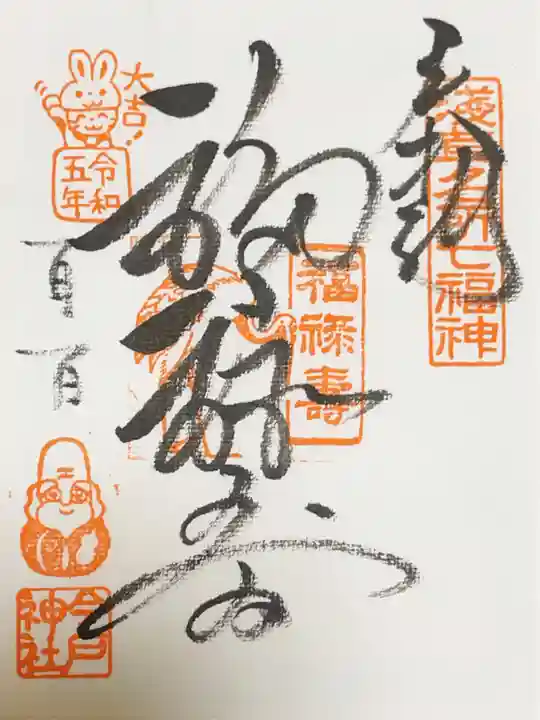 奉拝
浅草名所七福神
福禄寿
福禄寿
大吉!
令和
五年
一月一日
今戸
神社